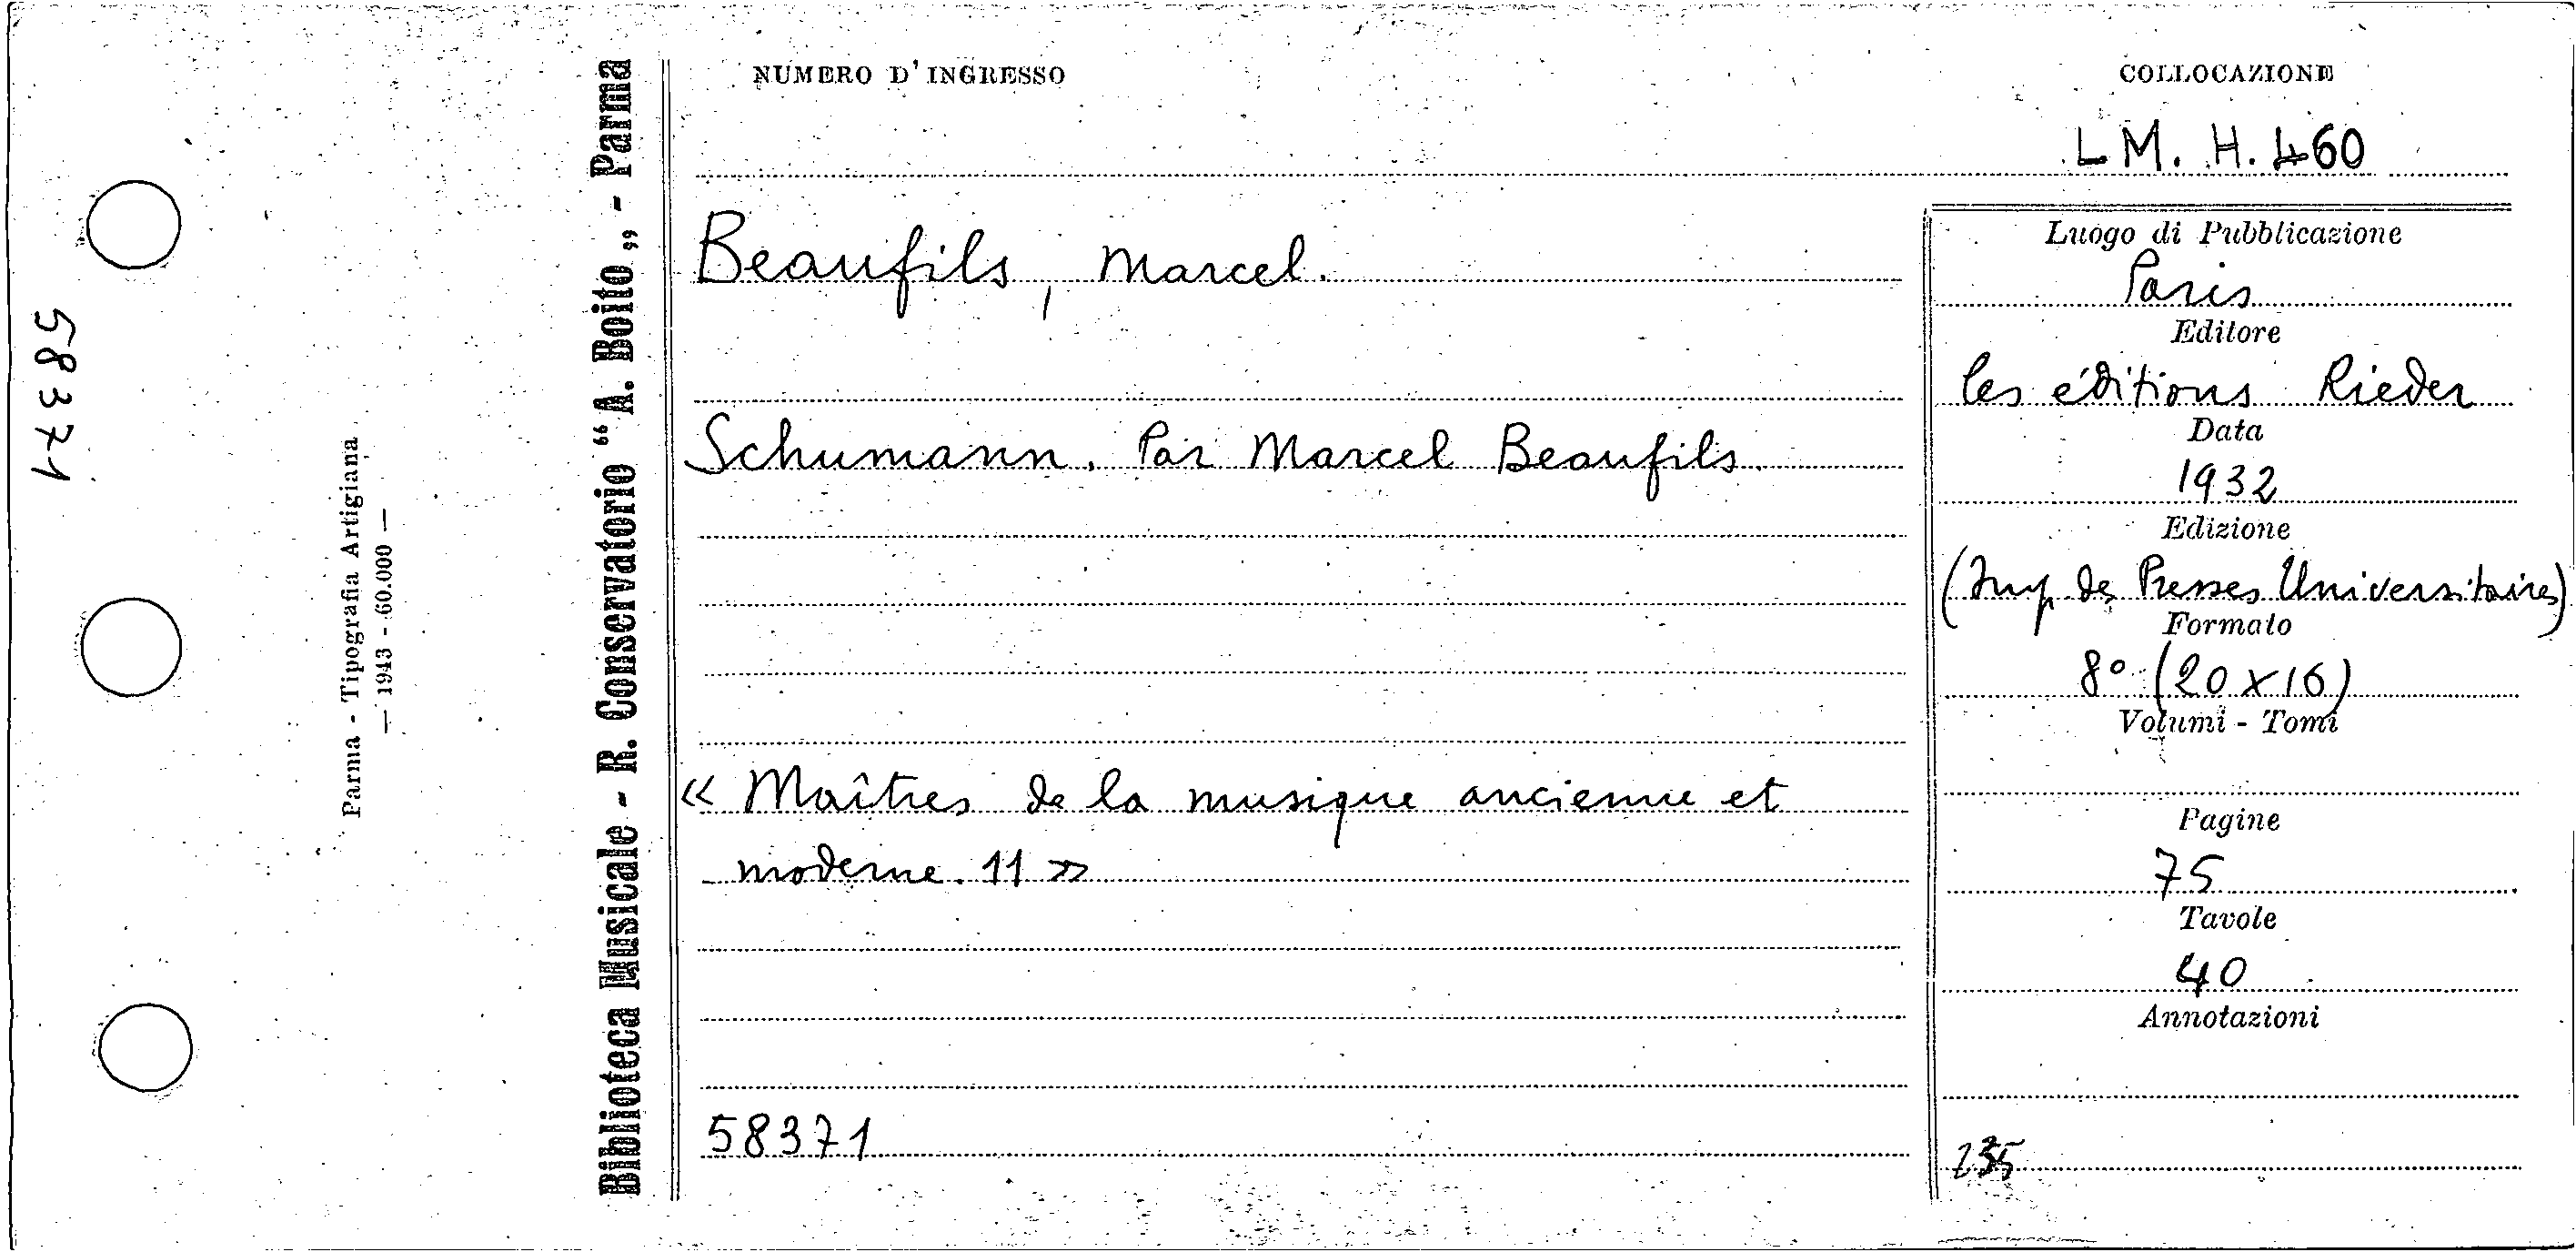 58371
Parma - Tipografia Artigiana
— 1943 - 60.000 —
Biblioteca Musicale - R. Conservatorio “A. Boito„ - Parma
NUMERO D' INGRESSO
COLLOCAZIONE
LM. H. 460
Beaufils, Marcel.
Schumann. Par Marcel Beaufils.
« Maîtres de la musique ancienne et
moderne. 11 »
58371
Luogo di Pubblicazione
Paris
Editore
les éditions Rieder
Data
1932
Edizione
(Imp. des Presses Universitaires)
Formato
8° (20 x 16)
Volumi - Tomi
Pagine
75
Tavole
40
Annotazioni